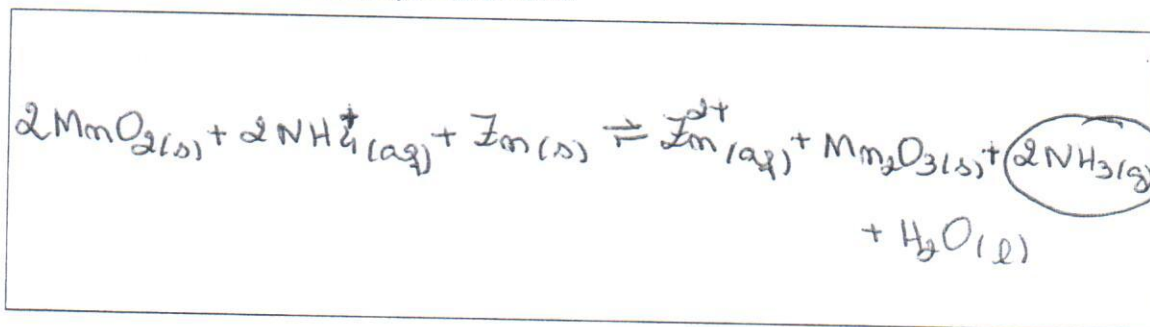 2MnO₂(s) + 2NH₄⁺(aq) + Zn(s) ⇌ Zn²⁺(aq) + Mn₂O₃(s) + 2NH₃(g)
+ H₂O(l)